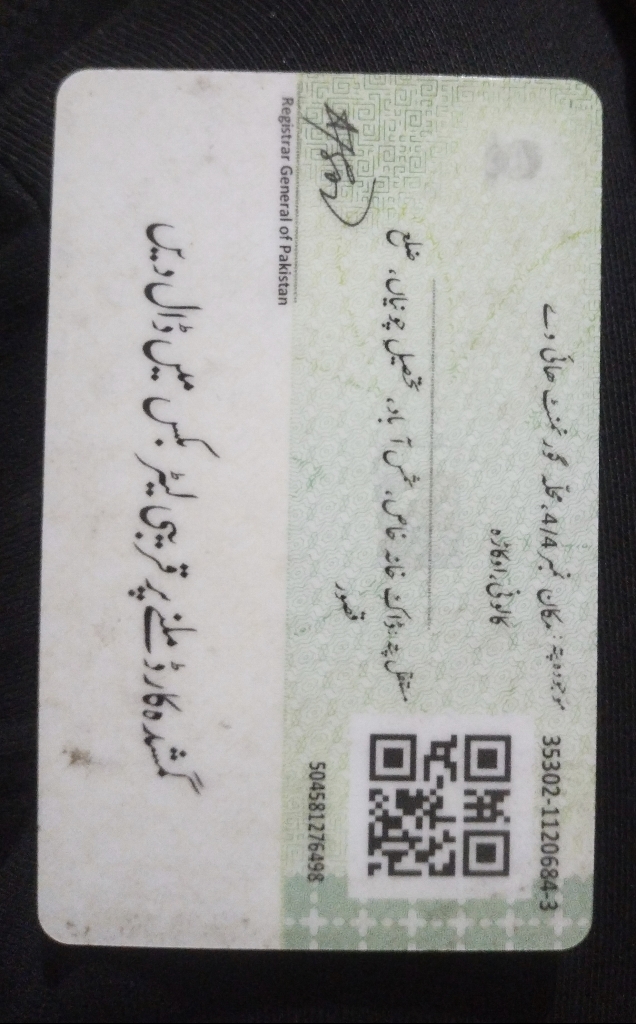 35302-1120684-3
موجودہ پتہ: مکان نمبر 4/4، محلہ گورنمنٹ ھائی وے
کالونی، اوکاڑہ
مستقل پتہ: ڈاک خانہ خاص، شمس آباد، تحصیل چونیاں، ضلع
قصور
504581276498
Registrar General of Pakistan
گمشدہ کارڈ ملنے پر قریبی لیٹر بکس میں ڈال دیں